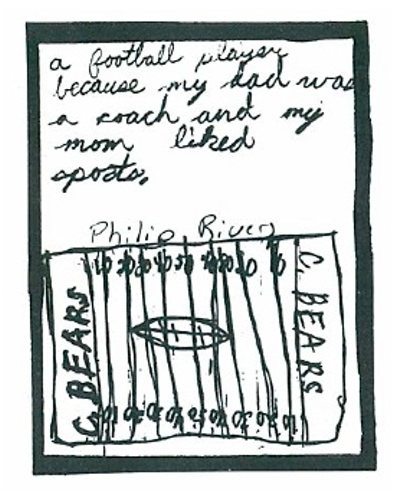 a football player
because my dad was
a coach and my
mom liked
sports.
Philip Rivers
C. BEARS
C. BEARS
10 20 30 40 50 40 30 20 10